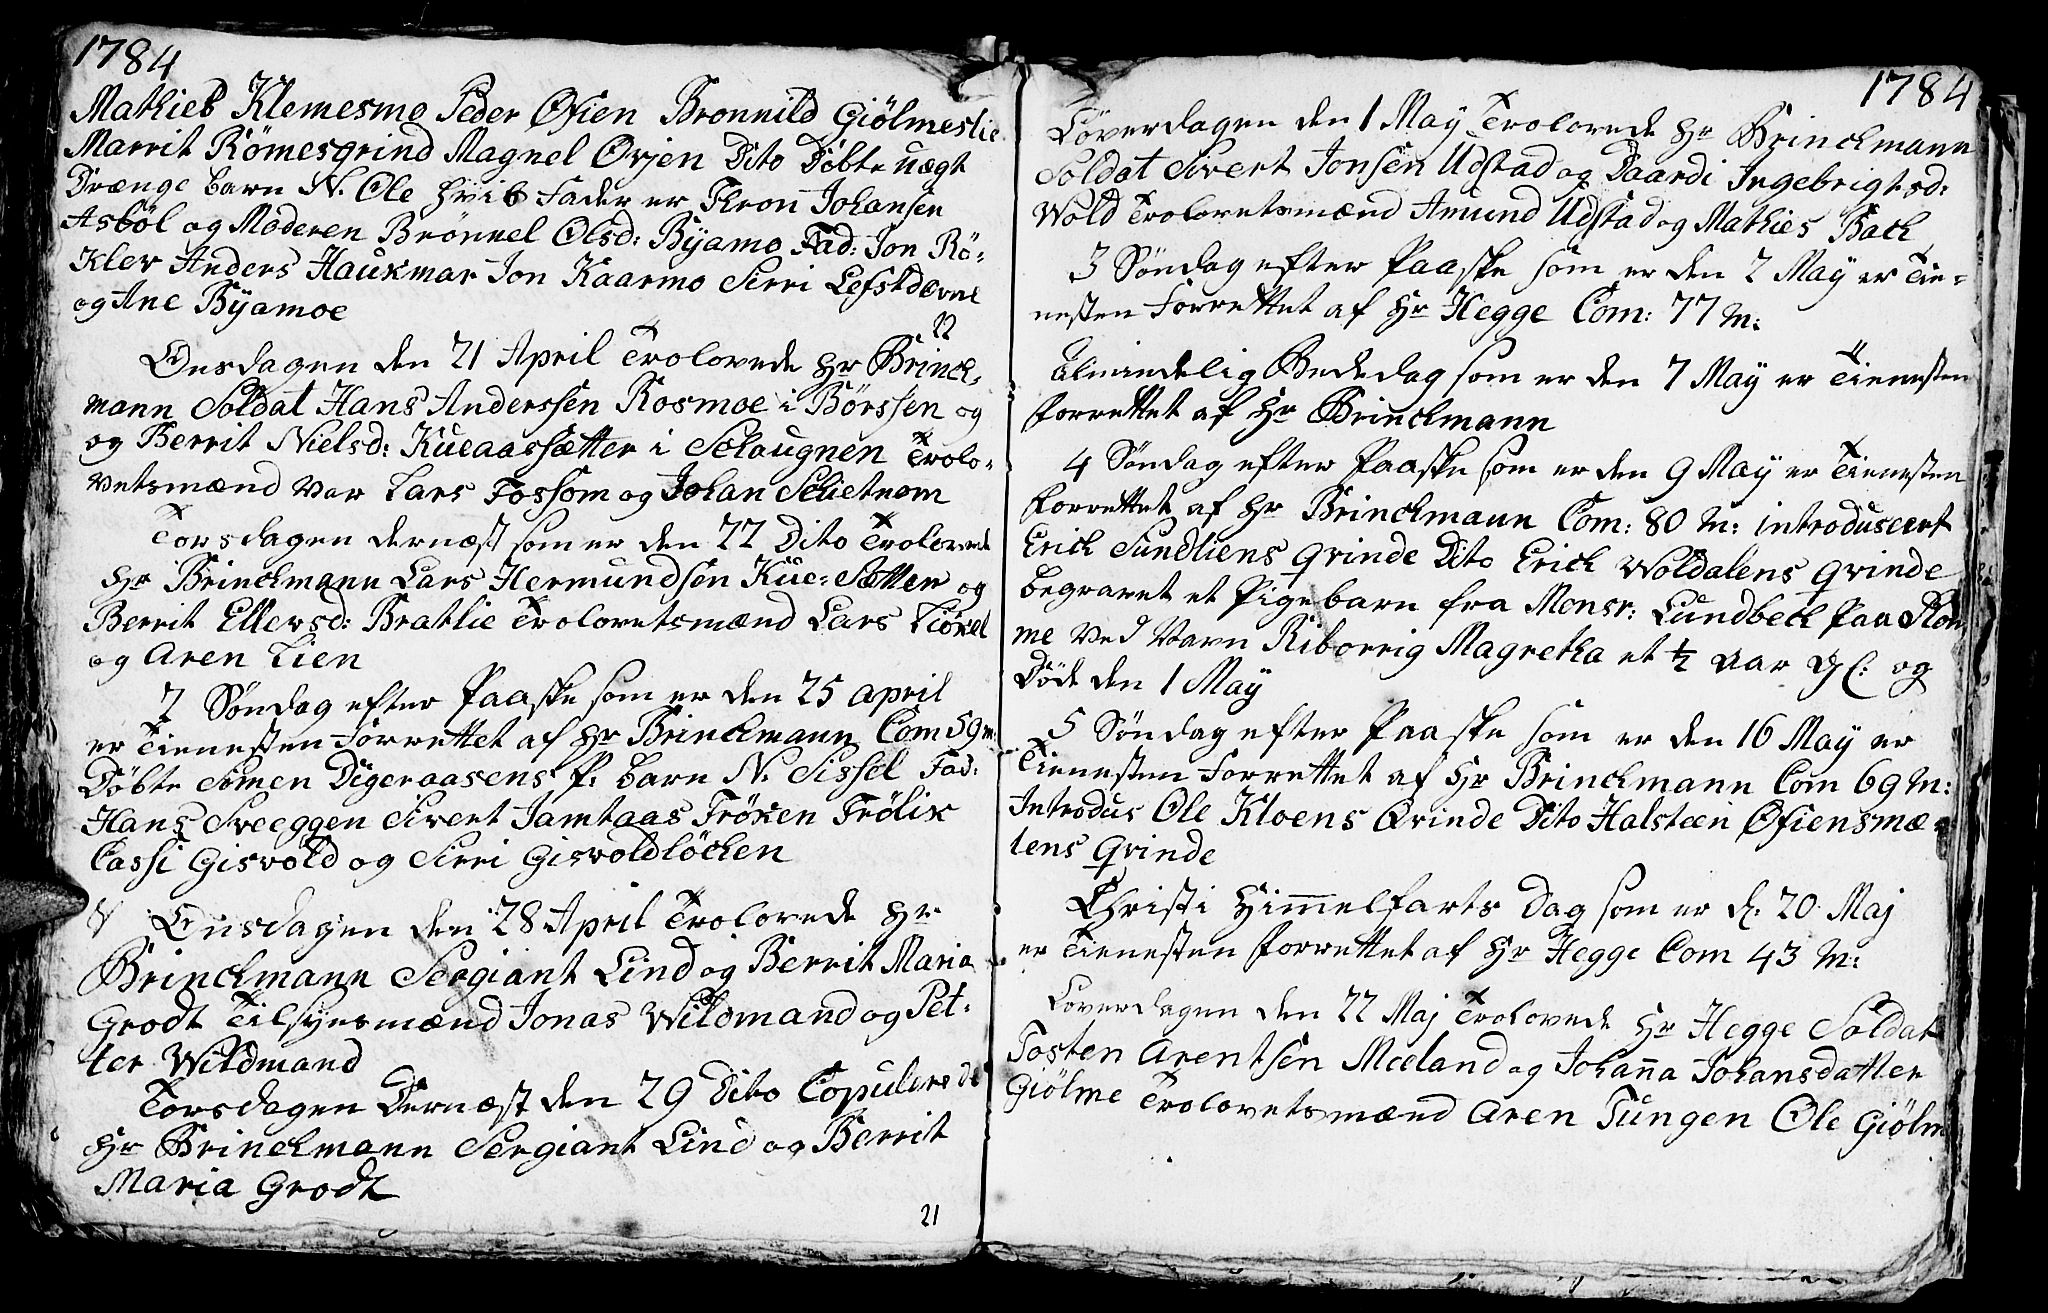 1784
Mathies Klemesmo Peder Øfien Bronnild Giölmeslie
Marrit Römesgrind Magnel Øvjen Dito Döbte uægt
Drænge barn N. Ole hvis Fader er Thron Johansen
Asböl og Moderen Brönnel Olsd: Byamo Fad: Jon Rö-
Klev Anders Haukmar Jon Kaarmo Sirri
og Ane Byamoe
Onsdagen den 21 April Trolovede Hr Brinck-
mann Soldat Hans Anderssen Rosmoe i Börssen og
og Berrit Nielsd: Kueaassætter i Schaugnen Trolo-
vetsmænd var Lars Fossom og Johan Schetnem
Torsdagen dernæst som er den 22 Dito Trolovede
Hr Brinckmann Lars Hermundsen Kue-Sætter og
Berrit Ellevsd: Bratlie Trolovetsmænd Lars
og Aren Lien
2 Söndag efter Paaske som er den 25 april
er Tienesten Forrettet af Hr Brinckmann Com 59 m:
Döbte Simen Digeraasens P. barn N. Sissel Fad:
Hans Sveeggen Sivert Jamtaas Fröken Frölik
Cassi Gisvold og Sirri Gisvoldlöcken
Onsdagen den 28 April Trolovede Hr
Brinckmann Sergiant Lind og Berrit Maria
Grodt Tilsynsmænd Jonas Wildmand og Pet-
ter Wildmand
Torsdagen Dernæst den 29 Dito Copulerede
Hr Brinckmann Sergiant Lind og Berrit
Maria Grodt
21
1784
Löverdagen den 1 May Trolovede Hr Brinckmann
Soldat Sivert Jonsen Udstad og Baardi Ingebrigtsd:
Wold Trolovetsmænd Amund Udstad og Mathies Back
3 Söndag efter Paaske som er den 2 May er Tie-
nesten Forrettet af Hr Hegge Com: 77 M:
Almindelig Bededag som er den 7 May er Tienesten
forrettet af Hr Brinckmann
4 Söndag efter Paaske som er den 9 May er Tienesten
forrettet af Hr Brinckmann Com: 80 M: introduseert
Erick Sundliens Qvinde Dito Erick Woldalens Qvinde
begravet et Pigebarn fra Monsr: Lundbeck Paa Rom
me Ved Navn Riborrig Magretha et ½ aar gl: og
Döde den 1 May
5 Söndag efter Paaske som er den 16 May er
Tienesten Forrettet af Hr Brinckmann Com 69 M:
Introdus Ole Kloens Qvinde Dito Halsteen Øfiensmæ-
lens Qvinde
Christi Himmelfarts Dag som er d: 20 Maj
er Tienesten forrettet af Hr Hegge Com 43 M:
Löverdagen den 22 Maj Trolovede Hr Hegge Soldat
Tosten Arentsen Meeland og Johanna Johansdatter
Giölme Trolovetsmænd Aren Tungen Ole Giölm